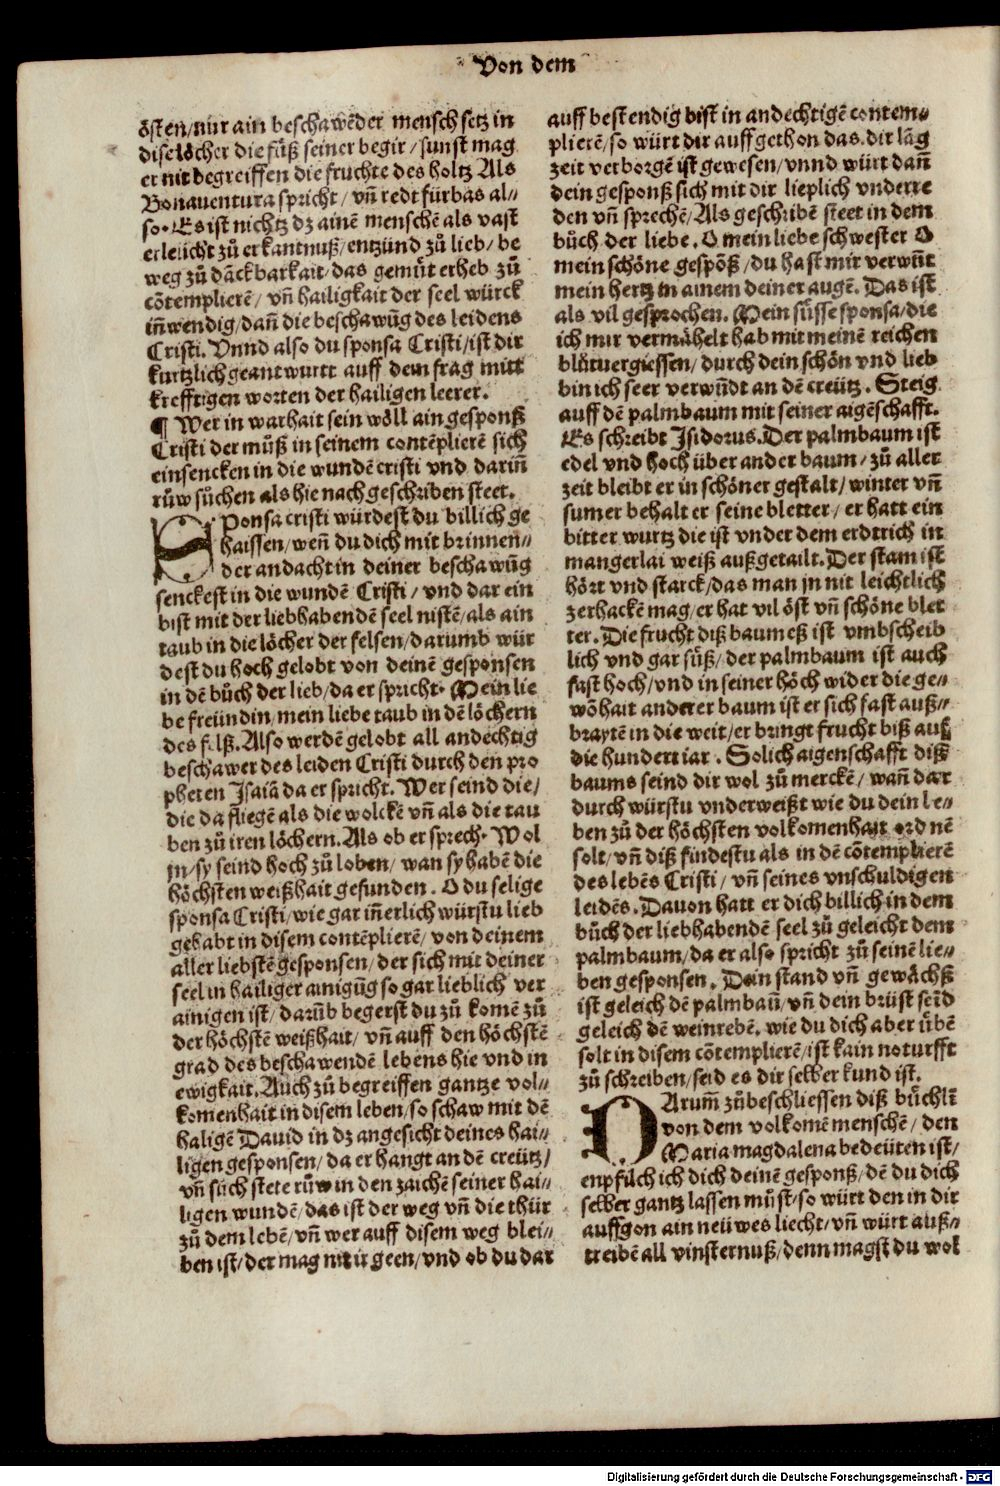 Von dem
östen/nur ain beschawēder mensch setz in
dise löcher die füß seiner begir/sunst mag
er nit begreiffen die fruchte des holtz Als
Bonauentura spricht/vñ redt fürbas al⸗
so. Es ist nichtz dz ainē menschē als vast
erleücht zů erkantnuß/entzünd zů lieb/be
weg zů dāckbarkait/das gemüt erheb zů
cōtemplierē/vñ hailigkait der seel würck
iñwendig/dañ die beschawūg des leidens
Cristi. Vnnd also du sponsa Cristi/ist dir
kurtzlich geantwurtt auff dein frag mitt
krefftigen worten der hailigen leerer.
¶ Wer in warhait sein wöll ain gesponß
Cristi der můß in seinem contēplierē sich
einsencken in die wundē cristi vnd dariñ
růw sůchen als hie nach geschriben steet.
SPonsa cristi würdest du billich ge
haissen/weñ du dich mit brinnen⸗
der andacht in deiner beschawūg
senckest in die wundē Cristi/vnd dar ein
bist mit der liebhabendē seel nistē/als ain
taub in die löcher der felsen/darumb wür
dest du hoch gelobt von deinē gesponsen
in dē bůch der lieb/da er spricht. Mein lie
be freündin/mein liebe taub in dē löchern
des felß. Also werdē gelobt all andechtig
beschawer des leiden Cristi durch den pro
pheten Isaiā da er spricht. Wer seind die/
die da fliegē als die wolckē vñ als die tau
ben zů iren löchern. Als ob er sprech. Wol
jn/sy seind hoch zů loben/wan sy habē die
höchsten weißhait gefunden. O du selige
sponsa Cristi/wie gar iñerlich würstu lieb
gehabt in disem contēplierē/von deinem
aller liebstē gesponsen/der sich mit deiner
seel in hailiger ainigūg so gar lieblich ver
ainigen ist/darūb begerst du zů komē zů
der höchstē weißhait/vñ auff den höchstē
grad des beschawendē lebens hie vnd in
ewigkait. Auch zů begreiffen gantze vol⸗
komenhait in disem leben/so schaw mit dē
haligē Dauid in dz angesicht deines hai⸗
ligen gesponsen/da er hangt an dē creütz/
vñ sůch stete růw in den zaichē seiner hai⸗
ligen wundē/das ist der weg vñ die thür
zů dem lebē/vñ wer auff disem weg blei⸗
ben ist/der mag nit ir geen/vnd ob du dar
auff bestendig bist in andechtigē contem⸗
plierē/so würt dir auffgethon das dir lāg
zeit verborgē ist gewesen/vnnd würt dañ
dein gesponß sich mit dir lieplich vnderre
den vñ sprechē/Als geschribē steet in dem
bůch der liebe. O mein liebe schwester O
mein schöne gespōß/du hast mir verwūt
mein hertz in ainem deiner augē. Das ist
als vil gesprochen. Mein süsse sponsa/die
ich mir vermähelt hab mit meinē reichen
blůtuergiessen/durch dein schön vnd lieb
bin ich seer verwūdt an dē creütz. Steig
auff dē palmbaum mit seiner aigēschafft.
Es schreibt Isidorus. Der palmbaum ist
edel vnd hoch über ander baum/zů aller
zeit bleibt er in schöner gestalt/winter vñ
sumer behalt er seine bletter/er hatt ein
bitter wurtz die ist vnder dem erdtrich in
mangerlai weiß außgetailt. Der stam ist
hört vnd starck/das man jn nit leichtlich
zerhackē mag/er hat vil öst vñ schöne blet
ter. Die frucht diß baumeß ist vmbscheib
lich vnd gar süß/der palmbaum ist auch
fast hoch/vnd in seiner höch wider die ge⸗
wōhait anderer baum ist er sich fast auß⸗
braytē in die weit/er bringt frucht biß auf
die hundert iar. Solich aigenschafft diß
baums seind dir wol zů merckē/wañ dar
durch würstu vnderweißt wie du dein le⸗
ben zů der höchsten volkomenhait ordnē
solt/vñ diß findestu als in dē cōtemplierē
des lebēs Cristi/vñ seines vnschuldigen
leidēs. Dauon hatt er dich billich in dem
bůch der liebhabendē seel zů geleicht dem
palmbaum/da er also spricht zů seinē lie⸗
ben gesponsen. Dein stand vñ gewächß
ist geleich dē palmbaū/vñ dein brüst seīd
geleich dē weinrebē. wie du dich aber übē
solt in disem cōtemplierē/ist kain noturfft
zů schreiben/seid es dir selber kund ist.
DArum̄ zůbeschliessen diß bůchlī
von dem volkomē menschē/den
Maria magdalena bedeüten ist/
enpfilch ich dich deinē gesponß/dē du dich
selber gantz lassen můst/so würt den in dir
auffgon ain neüwes liecht/vñ würt auß⸗
treibē all vinsternuß/denn magst du wol
Digitalisierung gefördert durch die Deutsche Forschungsgemeinschaft - DFG